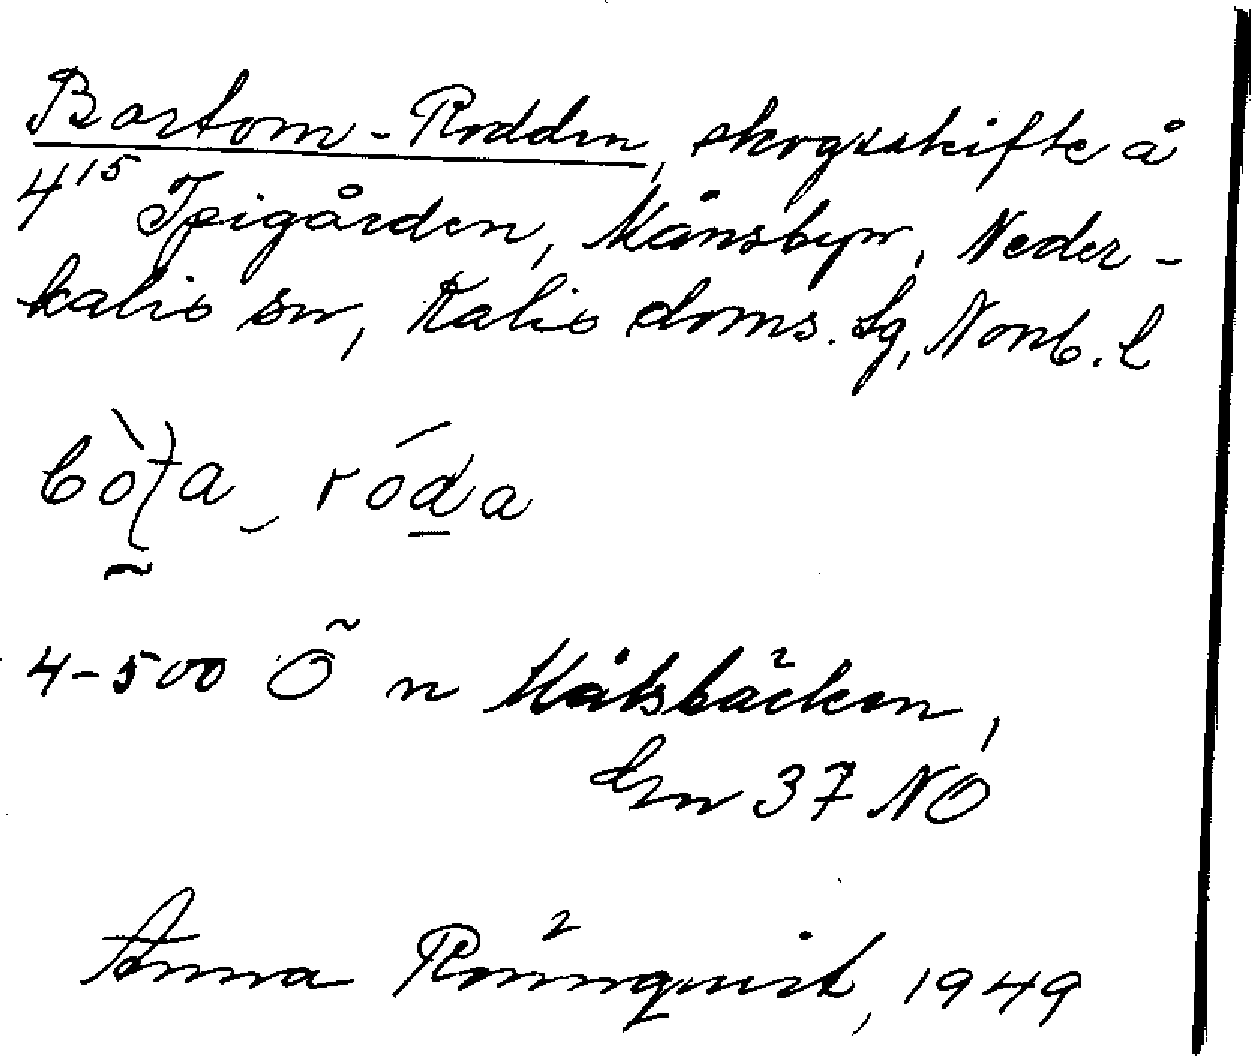 Bortom-Rödden, skogsskifte å
4¹⁵ Spigården, Månsbyn, Neder-
kalix sn, Kalix doms. lg, Norrb. l
4-500 Ö n Håtsbäcken,
Gm 37 NO
Anna Rönnqvist, 1949